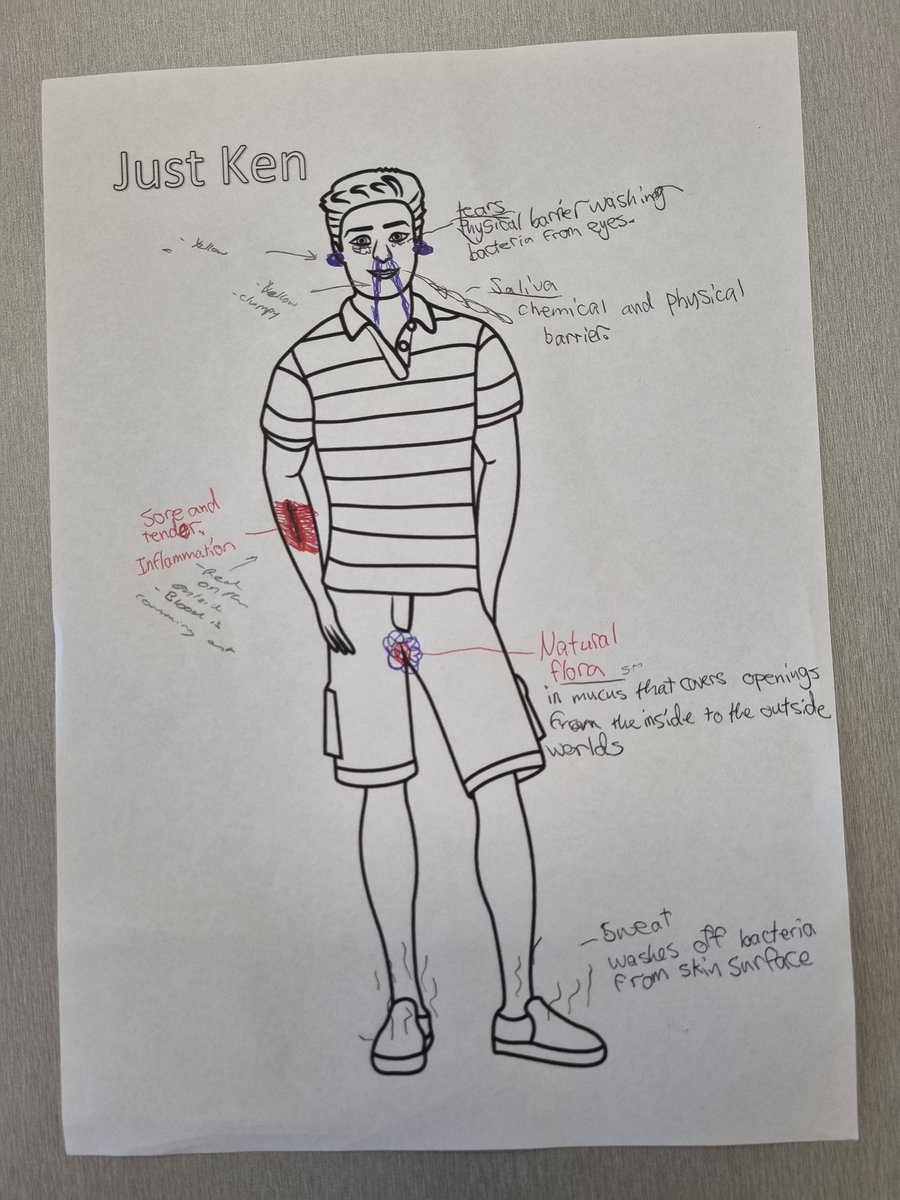 Just Ken
tears
Physical barrier washing
bacteria from eyes.
- Yellow
- Saliva
chemical and physical
barrier.
- Yellow
- clumpy
Sore and
tender.
Inflammation
- Red
on the
outside
- Blood is
comming out
Natural
flora
in mucus that covers openings
from the inside to the outside
worlds
- Sweat
washes off bacteria
from skin surface